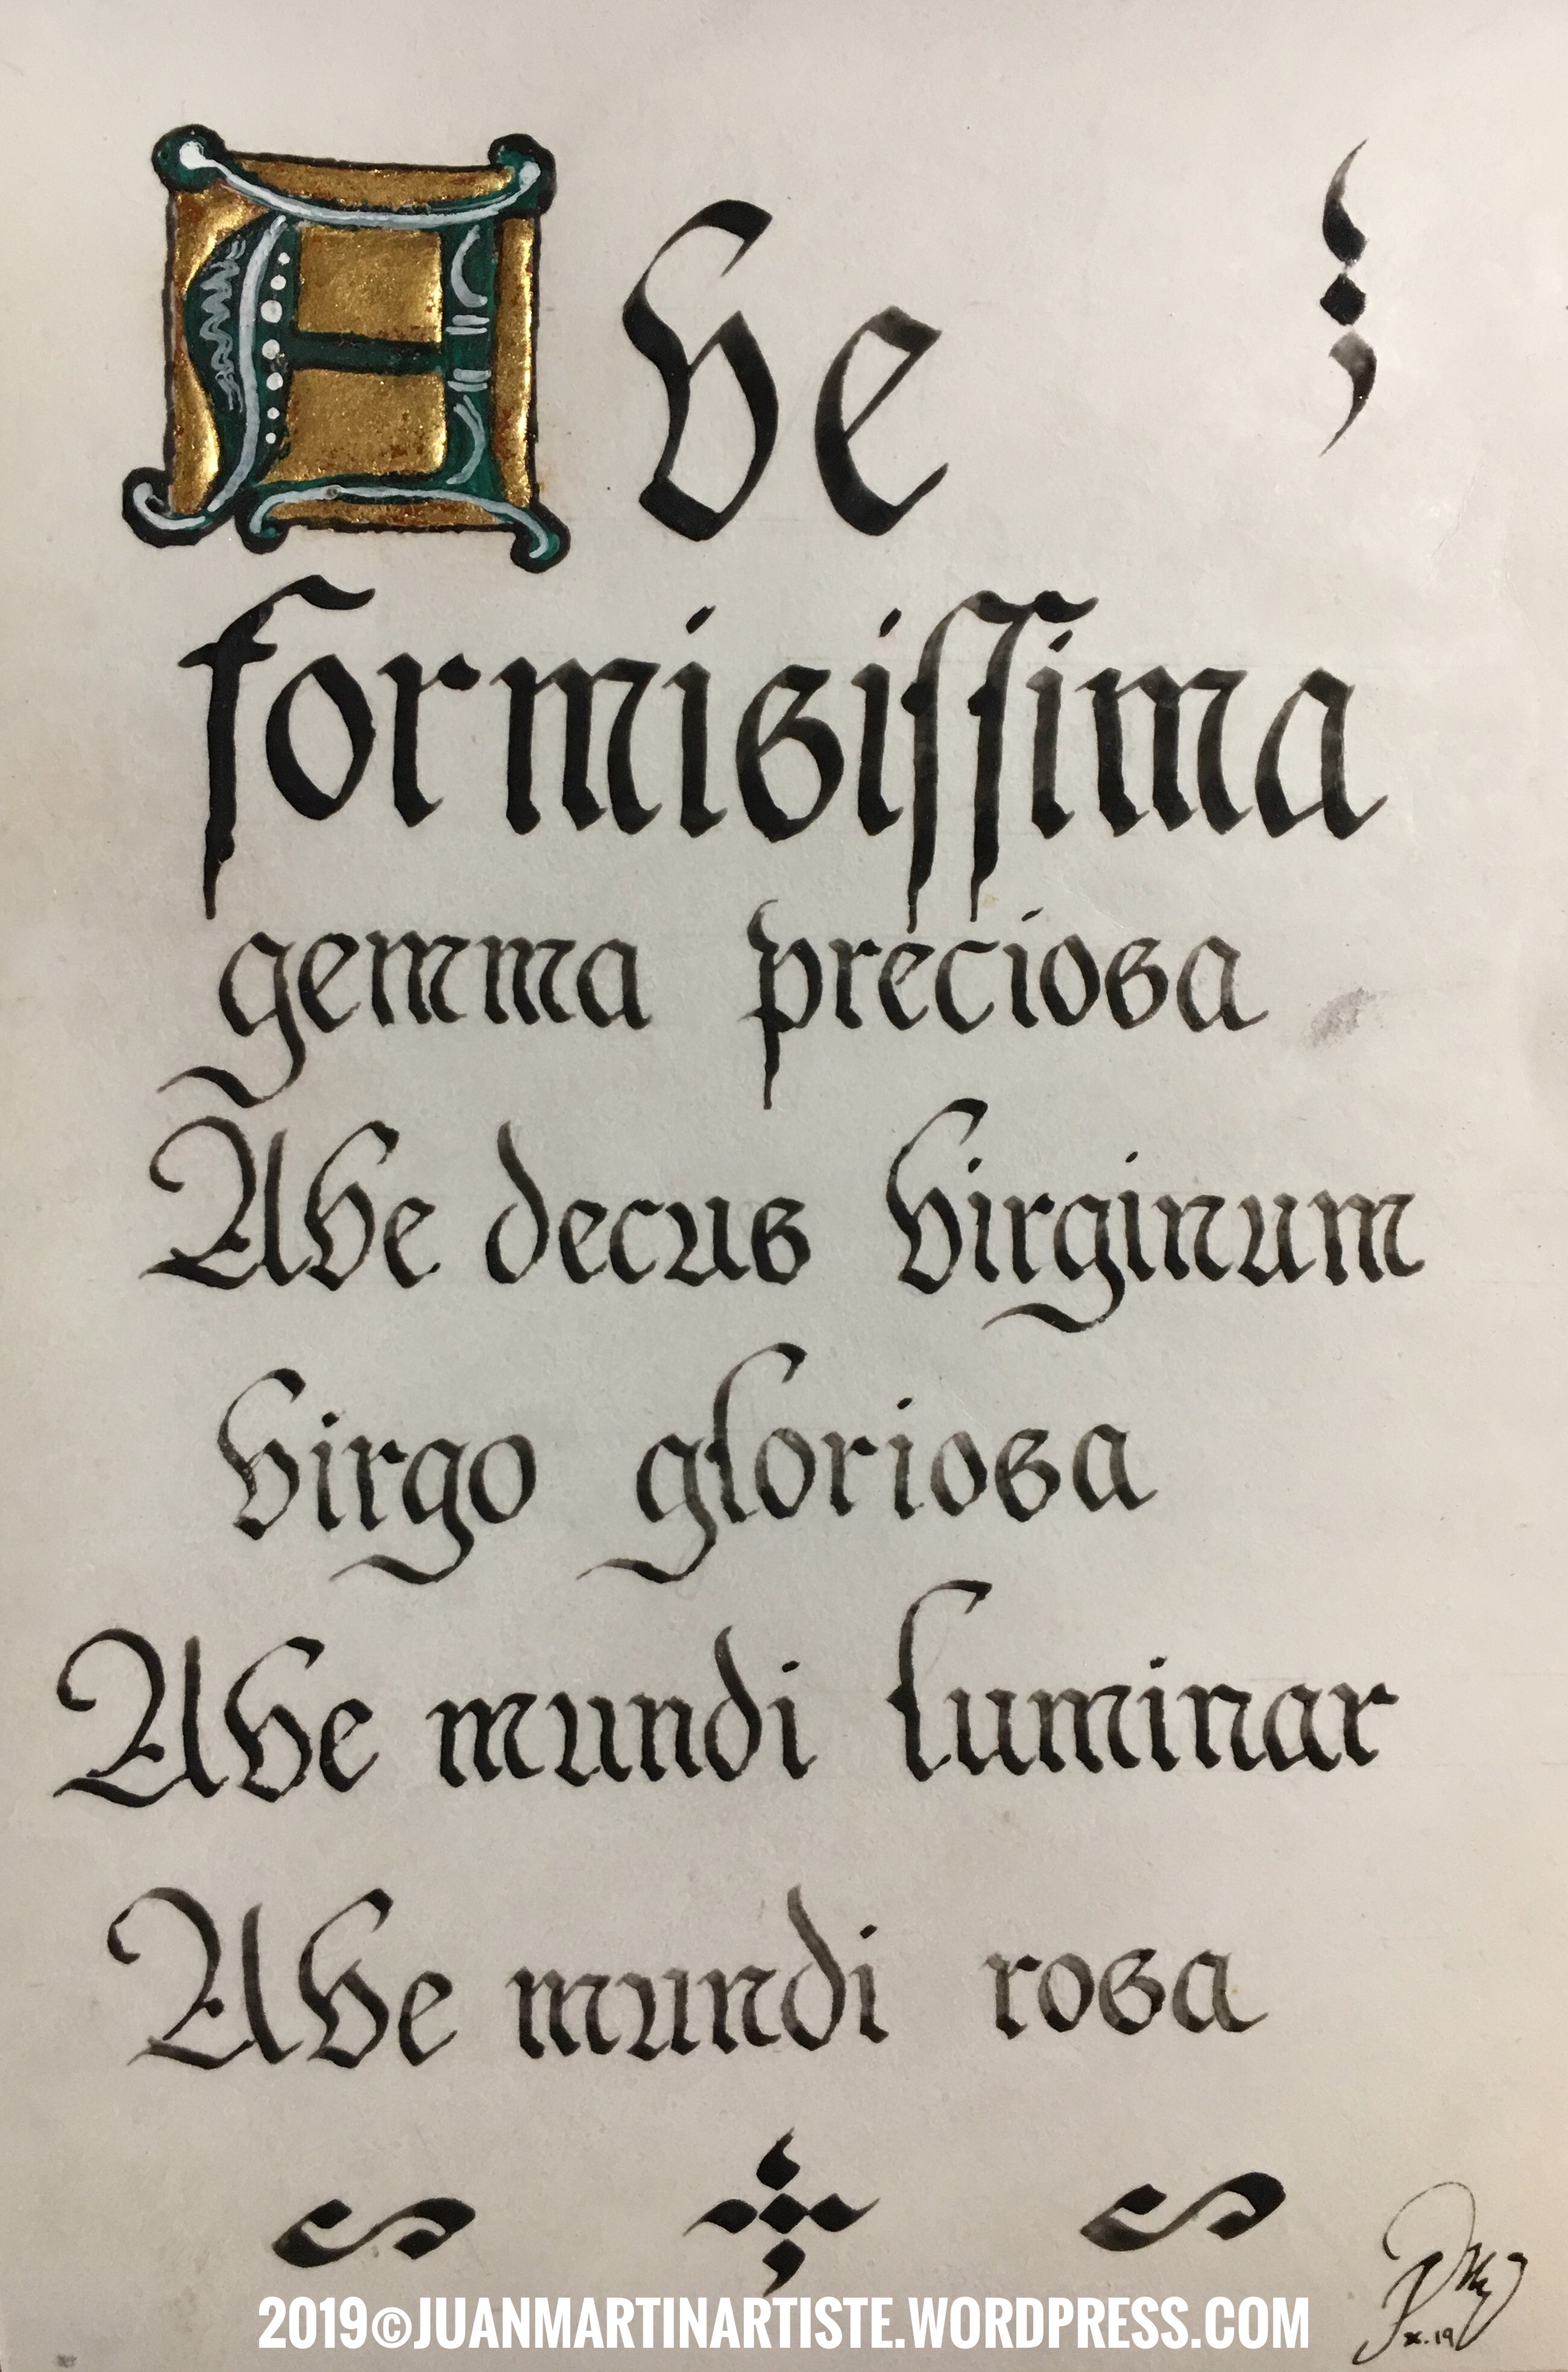 Ave
formisissima
gemma preciosa
Ave decus virginum
virgo gloriosa
Ave mundi luminar
Ave mundi rosa
x.19
2019©JUANMARTINARTISTE.WORDPRESS.COM